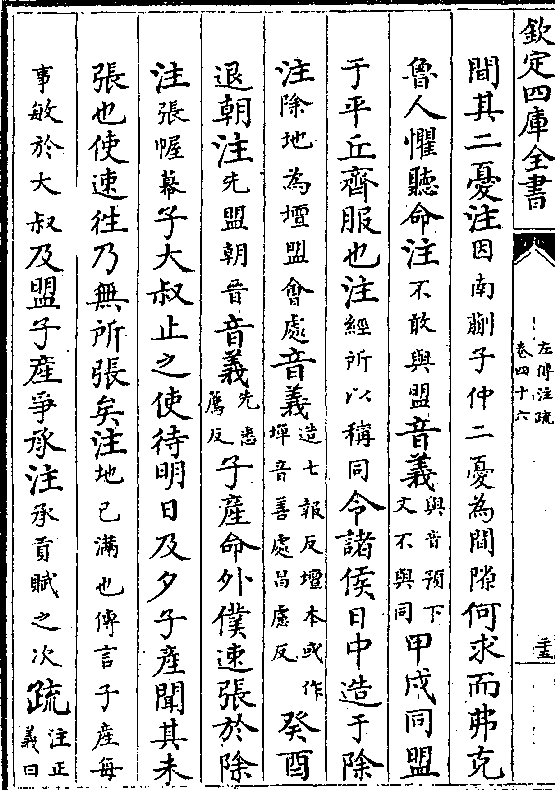 欽定四庫全書
左傳注疏
卷四十六
間其二憂注因南蒯子仲二憂為間隙何求而弗克
魯人懼聽命注不敢與盟音義與音預下文不與同甲戌同盟
于平丘齊服也注經所以稱同令諸侯日中造于除
注除地為壇盟會處音義造七報反壇本或作墠音善處昌慮反癸酉
退朝注先盟朝晉音義先悉薦反子產命外僕速張於除
注張幄幕子大叔止之使待明日及夕子產聞其未
張也使速往乃無所張矣注地已滿也傳言子產每
事敏於大叔及盟子產爭承注承貢賦之次疏注正義曰